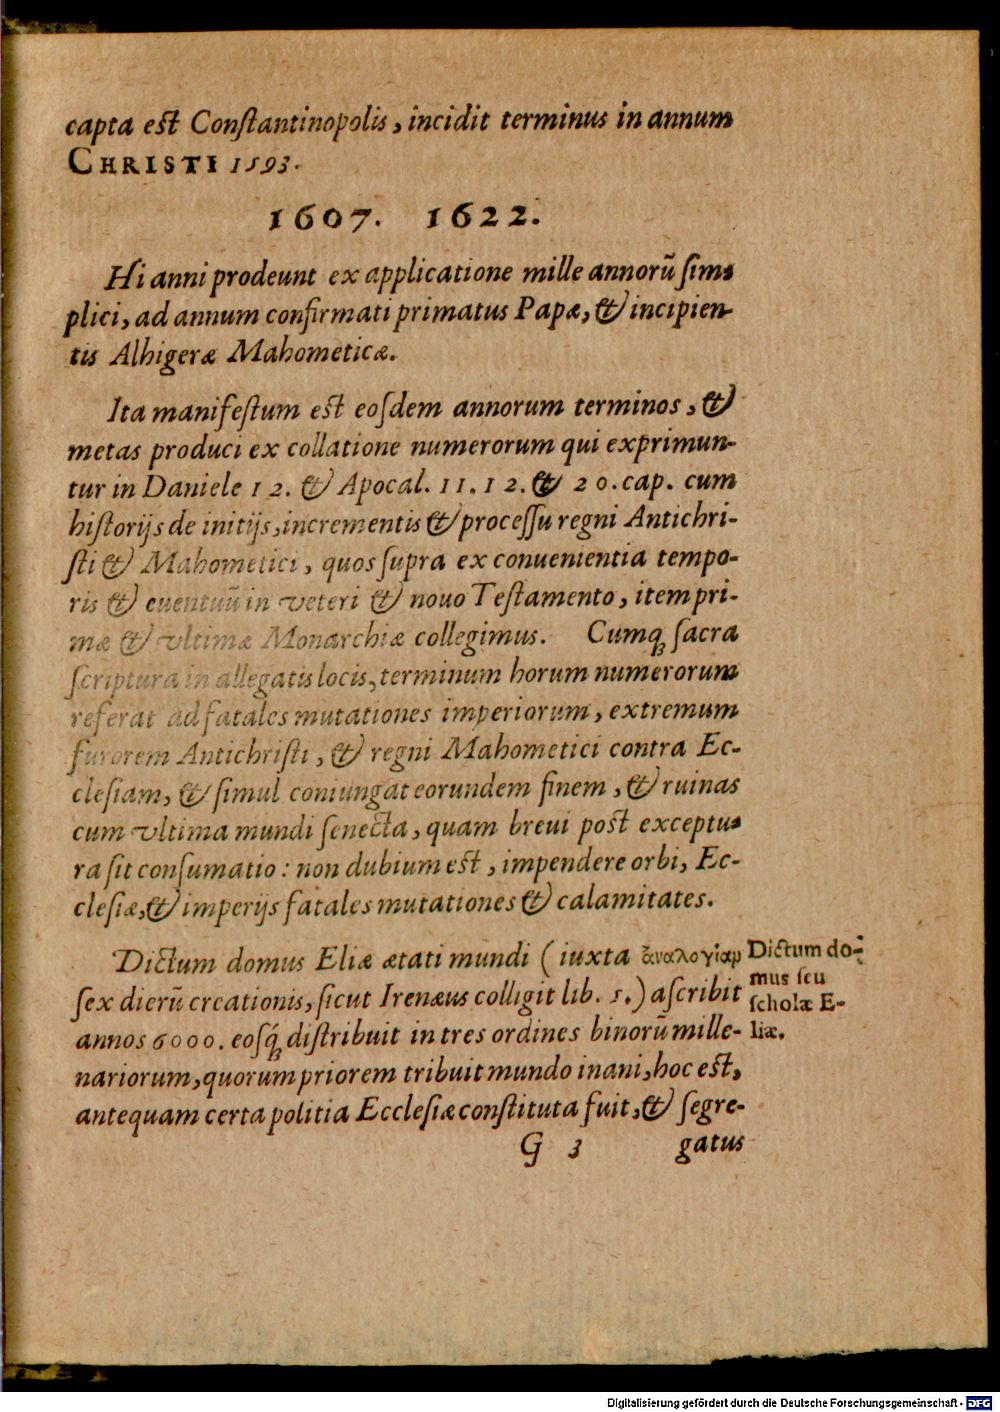 capta est Constantinopolis, incidit terminus in annum
CHRISTI 1593.
1607. 1622.
Hi anni prodeunt ex applicatione mille annorũ sim⸗
plici, ad annum confirmati primatus Papæ, & incipien-
tis Alhigeræ Mahometicæ.
Ita manifestum est eosdem annorum terminos, &
metas produci ex collatione numerorum qui exprimun-
tur in Daniele 12. & Apocal. 11. 12. & 20. cap. cum
historijs de initijs, incrementis & processu regni Antichri-
sti & Mahometici, quos supra ex conuenientia tempo-
ris & euentuũ in veteri & nouo Testamento, item pri-
mæ & vltimæ Monarchiæ collegimus. Cumq́; sacra
scriptura in allegatis locis, terminum horum numerorum
referat ad fatales mutationes imperiorum, extremum
furorem Antichristi, & regni Mahometici contra Ec-
clesiam, & simul coniungat eorundem finem, & ruinas
cum vltima mundi senecta, quam breui post exceptu⸗
ra sit consumatio: non dubium est, impendere orbi, Ec-
clesiæ, & imperijs fatales mutationes & calamitates.
Dictum domus Eliæ ætati mundi (iuxta ἀναλογίαμ
sex dierũ creationis, sicut Irenæus colligit lib. 5.) ascribit
annos 6000. eosq́; distribuit in tres ordines binorũ mille-
nariorum, quorum priorem tribuit mundo inani, hoc est,
antequam certa politia Ecclesiæ constituta fuit, & segre-
Dictum do-
mus seu
scholæ E-
liæ.
G 3 gatus
Digitalisierung gefördert durch die Deutsche Forschungsgemeinschaft - DFG